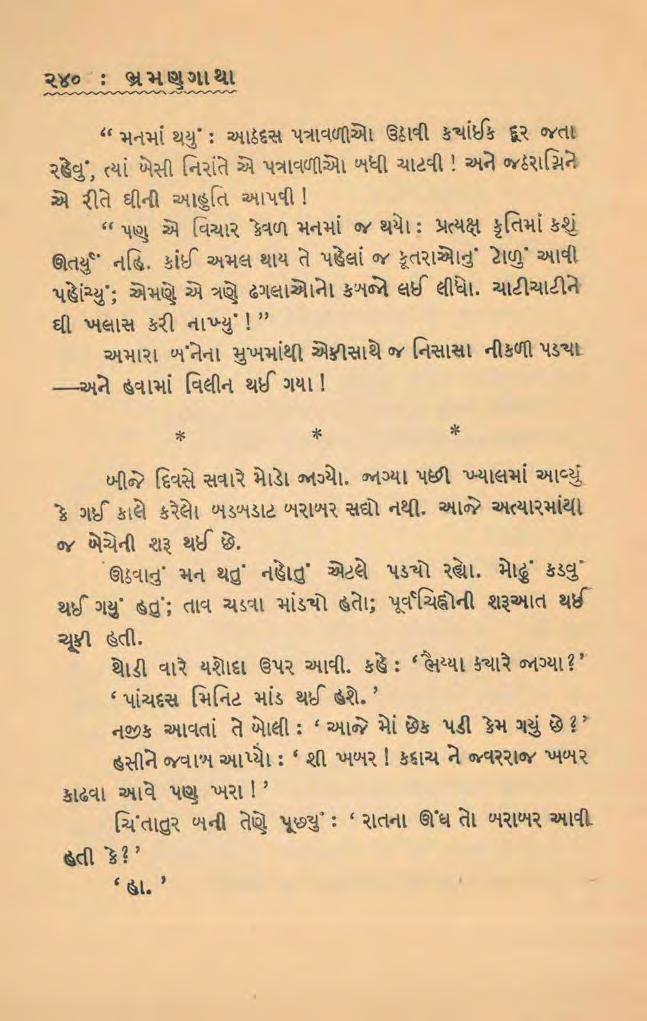 ૨૪૦ : ભ્રમણગાથા
“ મનમાં થયું : આઠદસ પત્રાવળીઓ ઉઠાવી ક્યાંઈક દૂર જતા
રહેવું, ત્યાં બેસી નિરાંતે એ પત્રાવળીઓ બધી ચાટવી ! અને જઠરાગ્નિને
એ રીતે ઘીની આહુતિ આપવી !
“ પણ એ વિચાર કેવળ મનમાં જ થયો : પ્રત્યક્ષ કૃતિમાં કશું
ઊતર્યું નહિ. કાંઈ અમલ થાય તે પહેલાં જ કૂતરાઓનું ટોળું આવી
પહોંચ્યું; એમણે એ ત્રણે ઢગલાઓનો કબજો લઈ લીધો. ચાટીચાટીને
ઘી ખલાસ કરી નાખ્યું ! ”
અમારા બંનેના મુખમાંથી એકીસાથે જ નિસાસા નીકળી પડ્યા
—અને હવામાં વિલીન થઈ ગયા !
* * *
બીજે દિવસે સવારે મોડો જાગ્યો. જાગ્યા પછી ખ્યાલમાં આવ્યું
કે ગઈ કાલે કરેલો બડબડાટ બરાબર સહ્યો નથી. આજે અત્યારમાંથી
જ બેચેની શરૂ થઈ છે.
ઊઠવાનું મન થતું નહોતું એટલે પડ્યો રહ્યો. મોઢું કડવું
થઈ ગયું હતું; તાવ ચડવા માંડ્યો હતો; પૂર્વચિહ્નોની શરૂઆત થઈ
ચૂકી હતી.
થોડી વારે યશોદા ઉપર આવી. કહે : ‘ ભૈય્યા ક્યારે જાગ્યા ? ’
‘ પાંચદસ મિનિટ માંડ થઈ હશે. ’
નજીક આવતાં તે બોલી : ‘ આજે મોં છેક પડી કેમ ગયું છે ? ’
હસીને જવાબ આપ્યો : ‘ શી ખબર ! કદાચ ને જ્વરરાજ ખબર
કાઢવા આવે પણ ખરા ! ’
ચિંતાતુર બની તેણે પૂછ્યું : ‘ રાતના ઊંઘ તો બરાબર આવી
હતી કે ? ’
‘ હા. ’